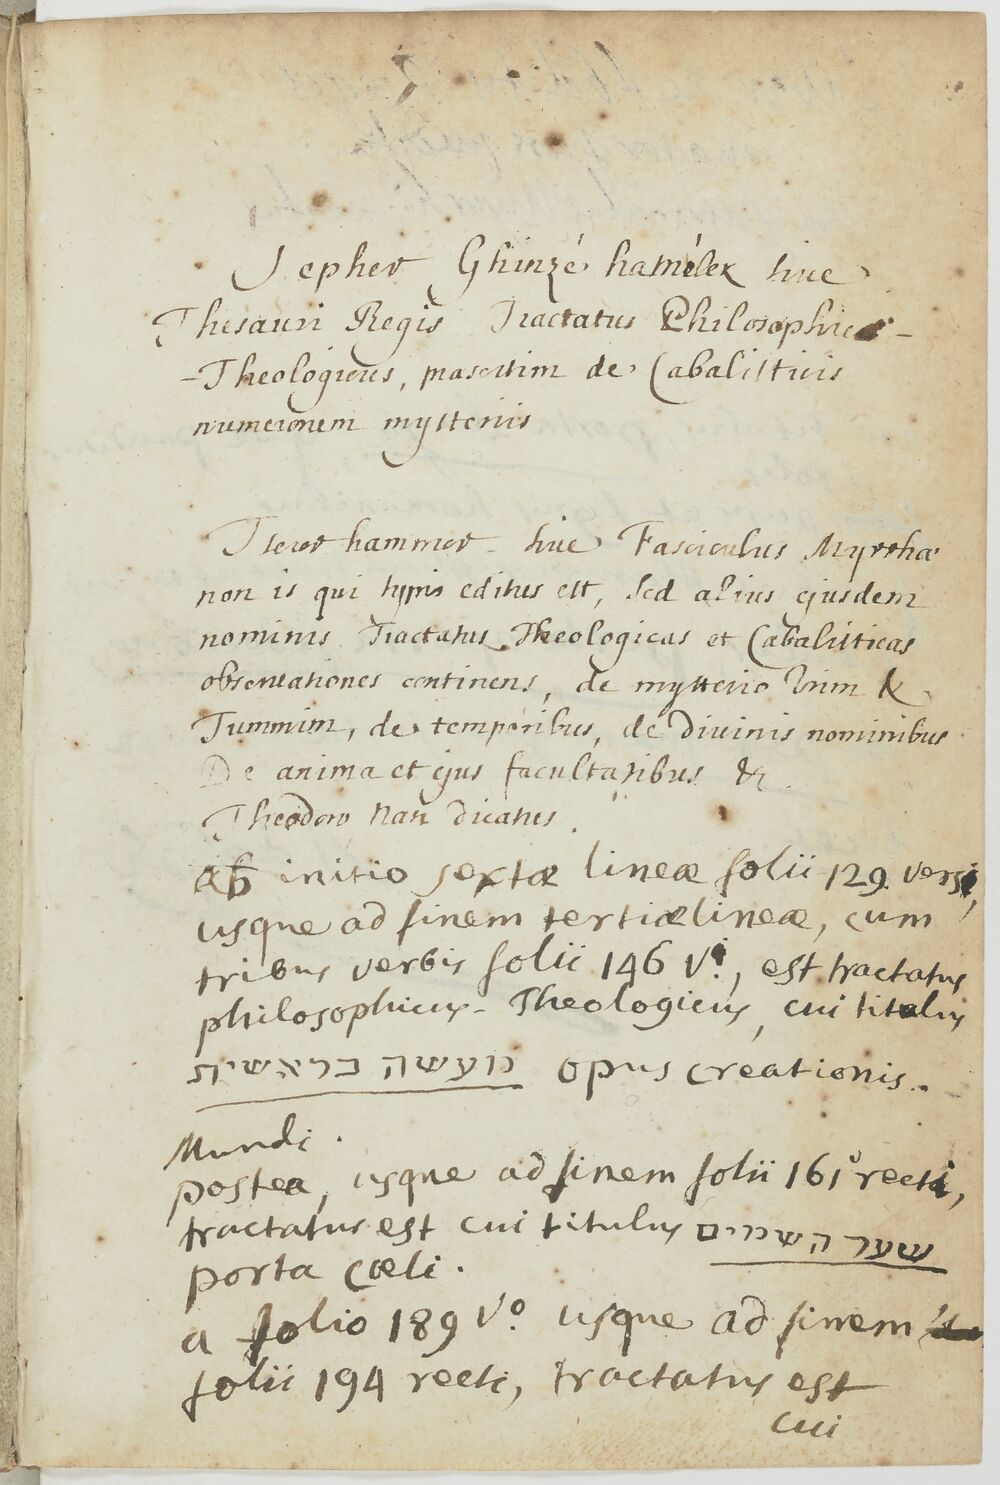 Sepher Ghinzé hamélex sive
Thesauri Regis Tractatus Philosophicus-
-Theologicus, præsertim de Cabalisticis
numerorum mysteriis
Tseror hammor sive Fasciculus Myrrhæ
non is qui typis editus est, sed alius ejusdem
nominis Tractatus Theologicas et Cabalisticas
observationes continens, de mysterio Urim &
Tummim, de temporibus, de Divinis nominibus
De anima et ejus facultatibus &c
Theodoro Nasi dicatus.
ab initio sextæ lineæ folii 129. versi,
usque ad finem tertiæ lineæ, cum
tribus verbis folii 146 vi, est tractatus
philosophicus-Theologicus, cui titulus
מעשה בראשית opus creationis.
Mundi.
postea, usque ad finem folii 161 recti,
tractatus est cui titulus שער השמים
porta cœli.
a folio 189 vo. usque ad finem
folii 194 recti, tractatus est
cui